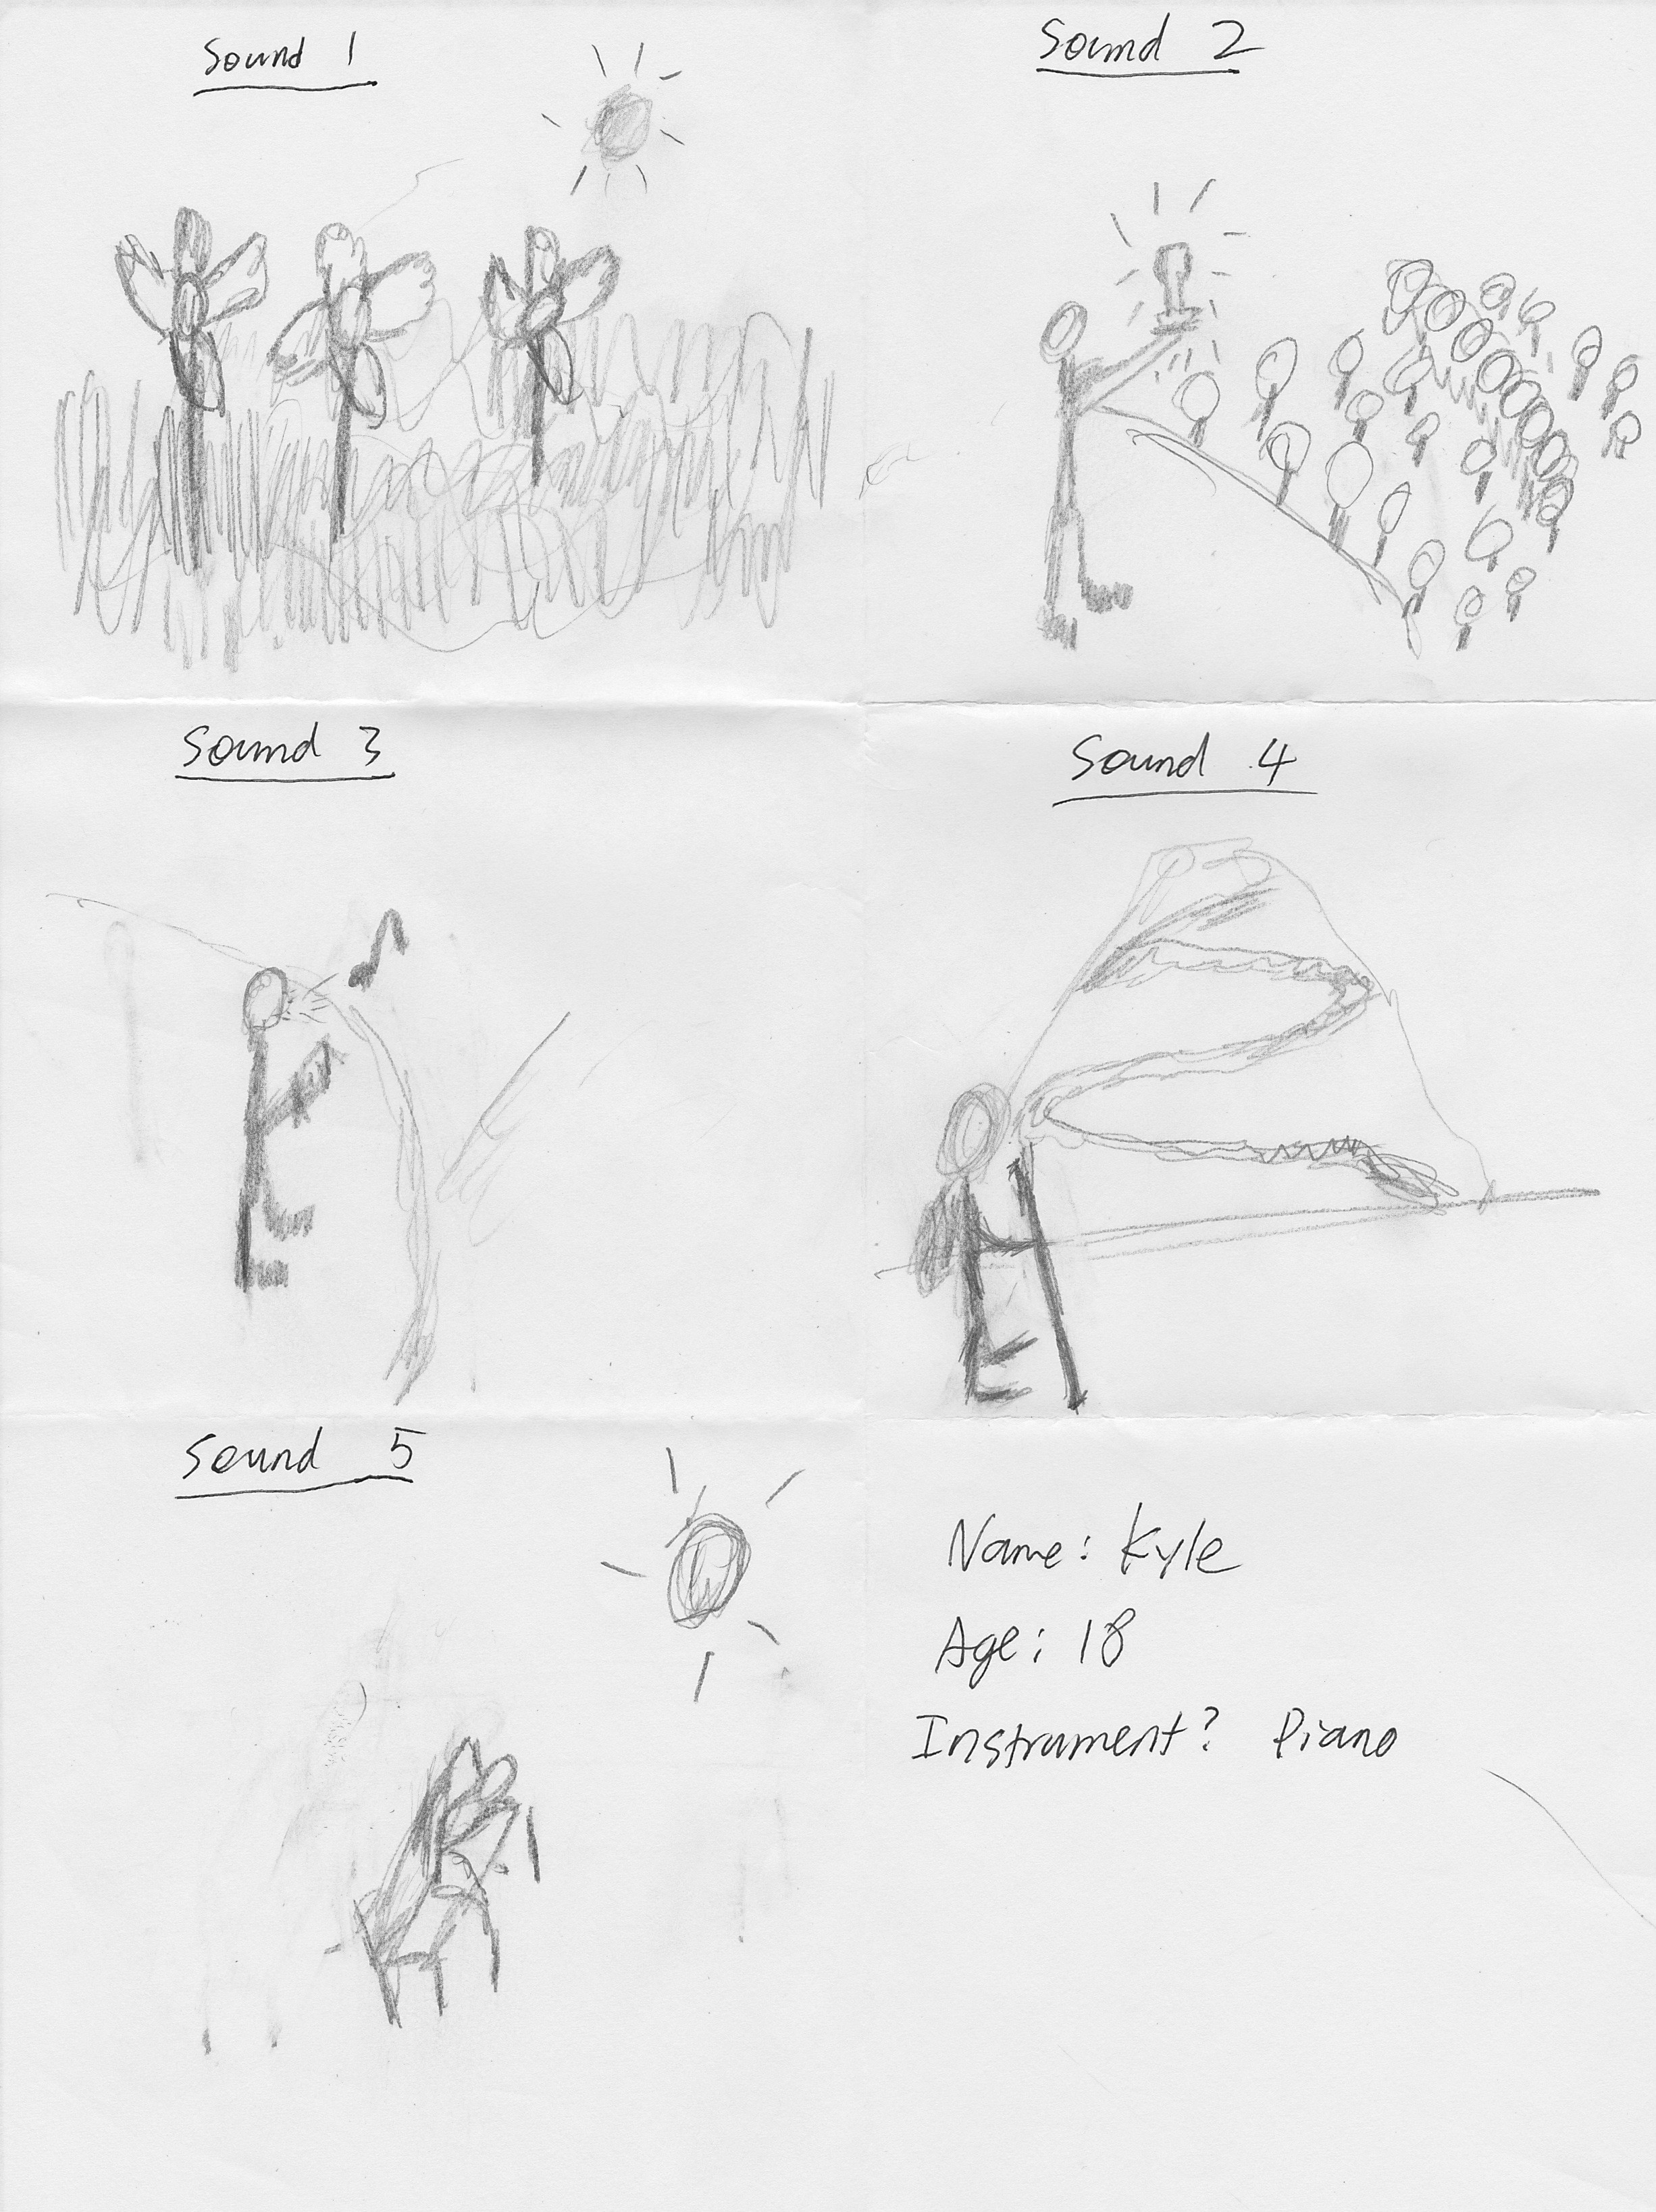 Sound 1
Sound 2
Sound 3
Sound 4
Sound 5
Name: Kyle
Age: 18
Instrument? Piano